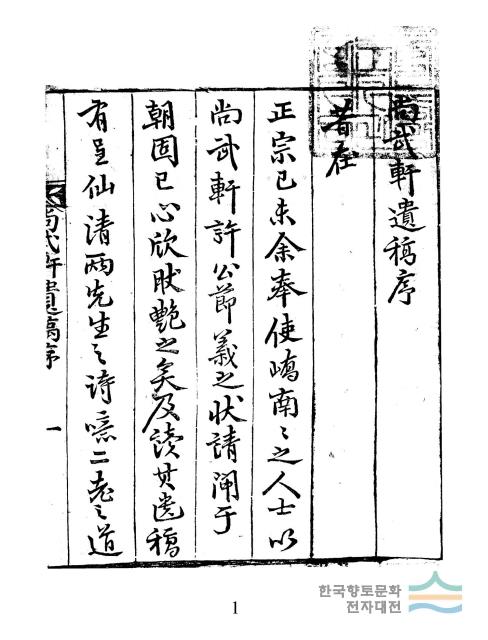 尚武軒遺稿序
昔在
正宗己未余奉使嶠南〻之人士以
尚武軒許公節義之狀請聞于
朝固已心欣肰艶之矣及讀其遺稿
有呈仙清兩先生〻詩噫二老〻道
尚武軒遺稿序 一
한국향토문화
전자대전
1